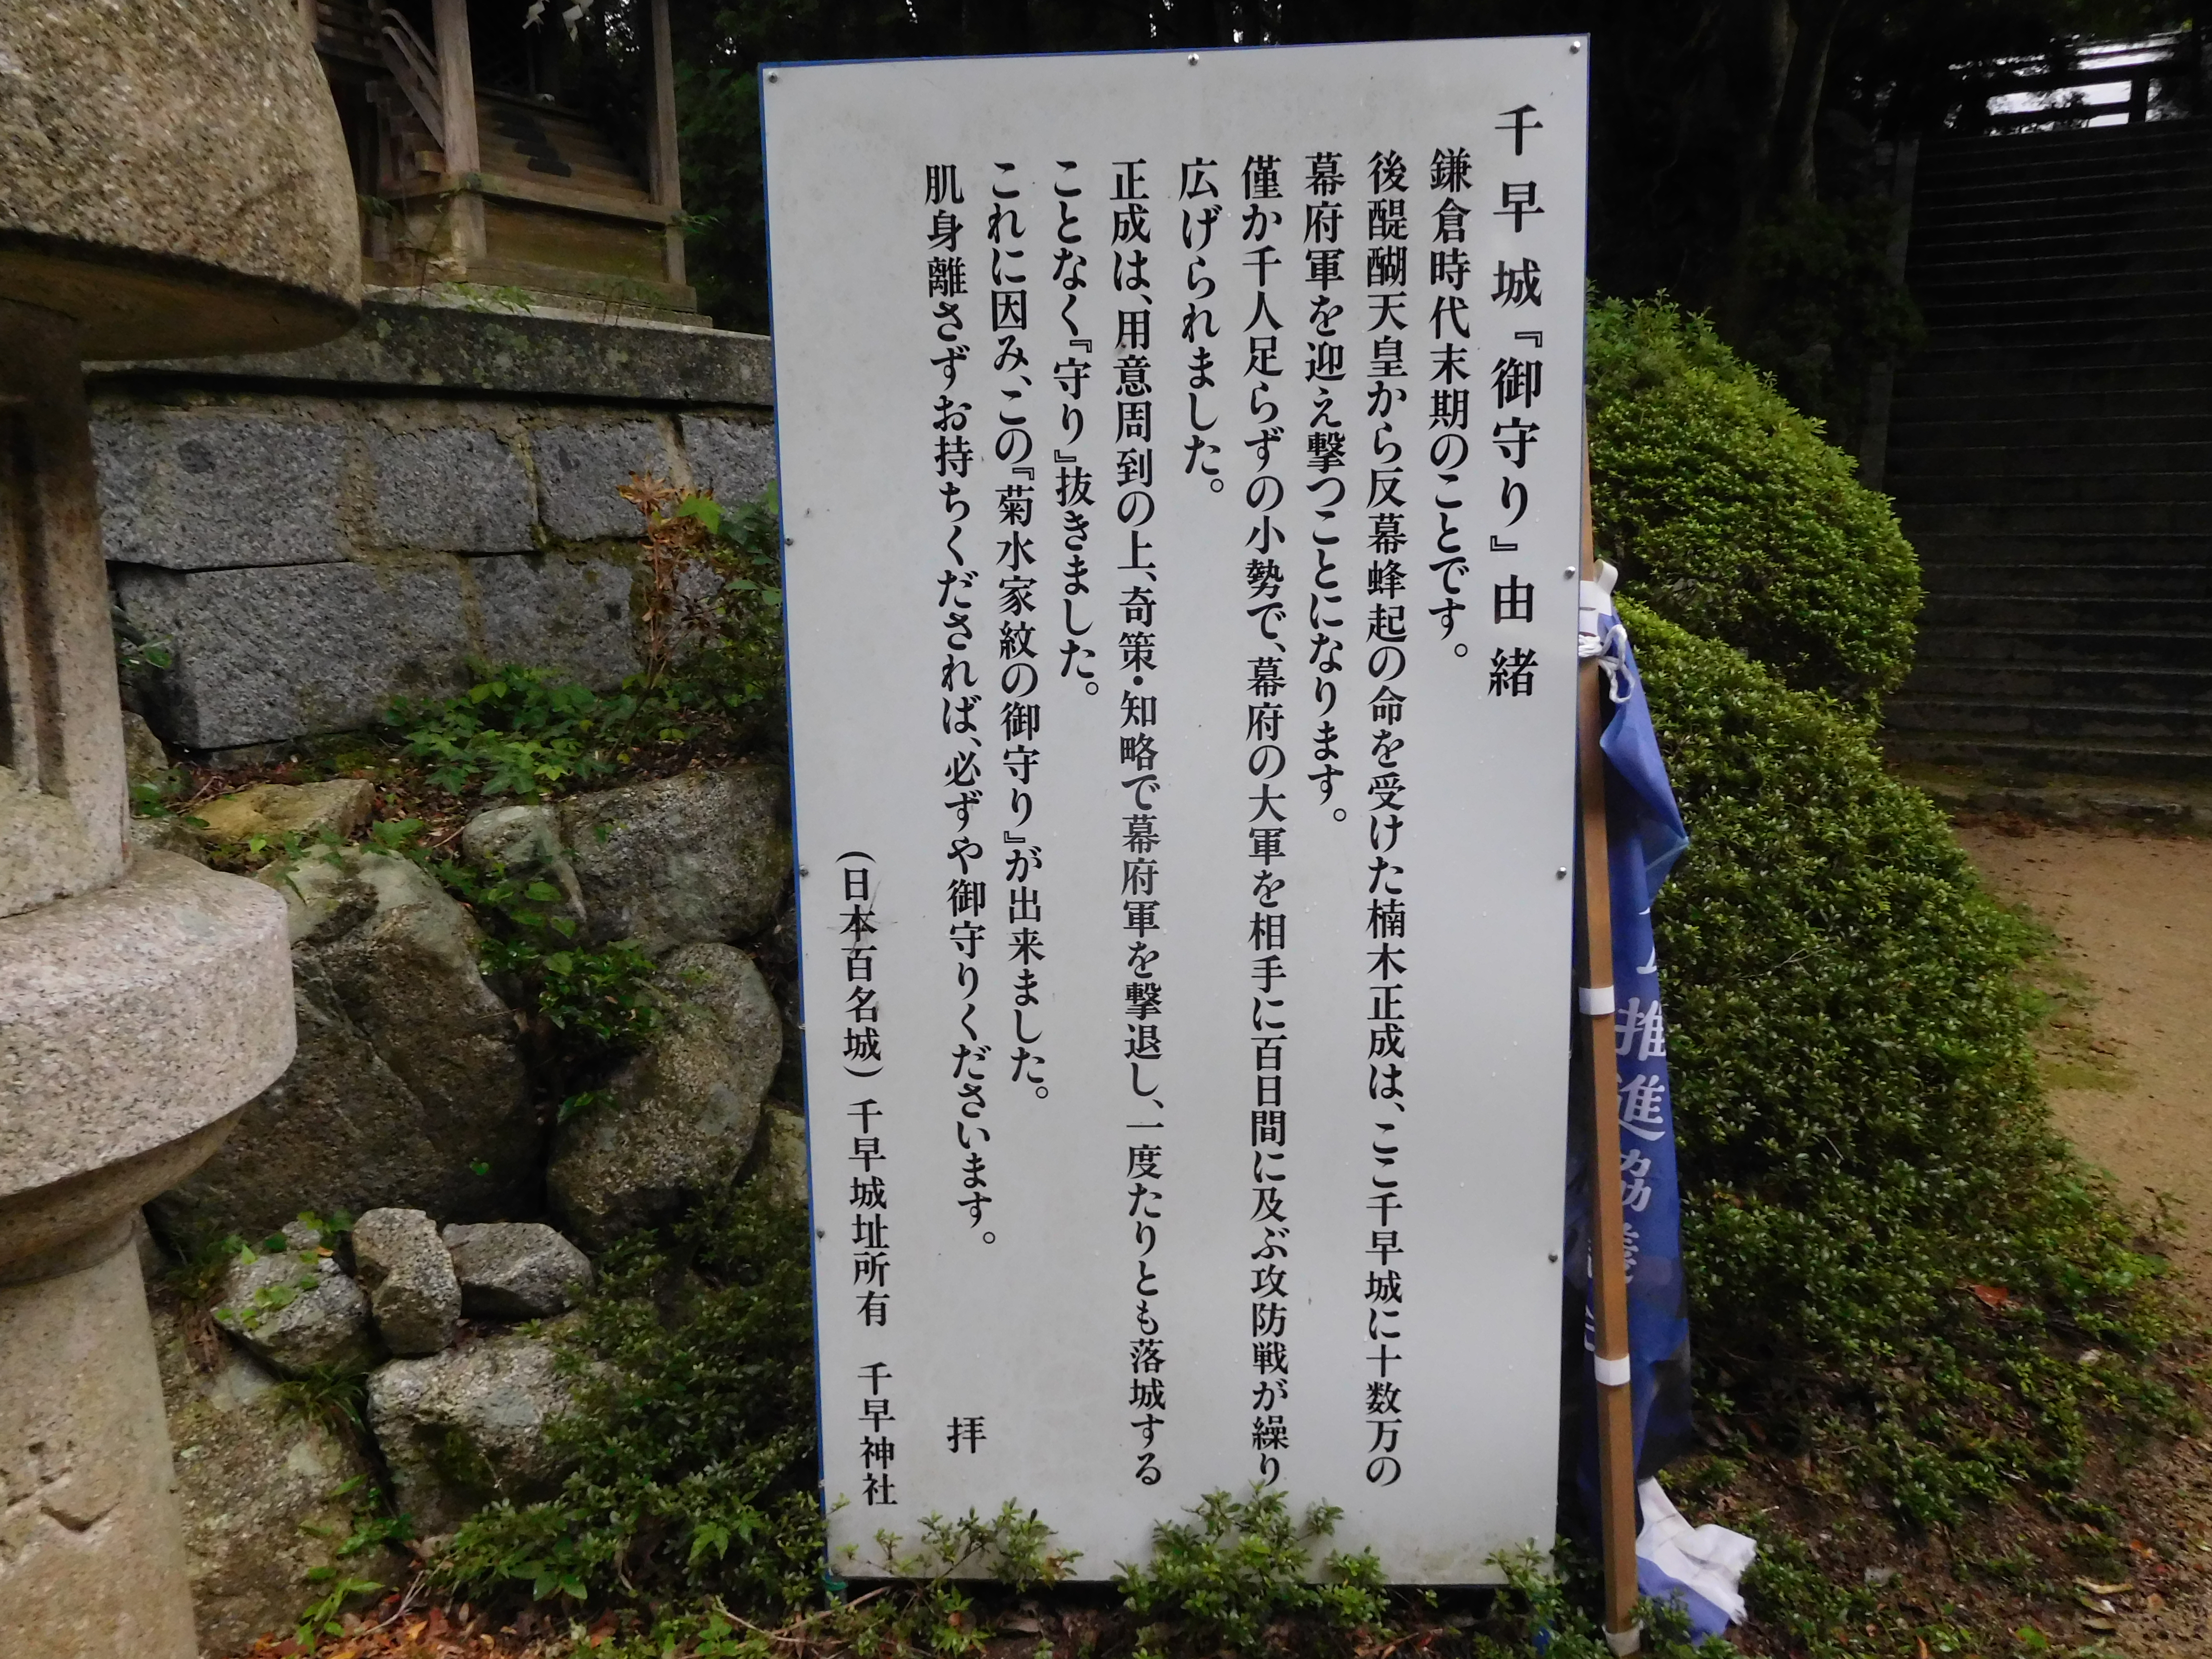 千早城『御守り』由緒
鎌倉時代末期のことです。
後醍醐天皇から反幕蜂起の命を受けた楠木正成は、ここ千早城に十数万の
幕府軍を迎え撃つことになります。
僅か千人足らずの小勢で、幕府の大軍を相手に百日間に及ぶ攻防戦が繰り
広げられました。
正成は、用意周到の上、奇策・知略で幕府軍を撃退し、一度たりとも落城する
ことなく『守り』抜きました。
これに因み、この『菊水家紋の御守り』が出来ました。
肌身離さずお持ちくだされば、必ずや御守りくださいます。
拝
(日本百名城)千早城址所有 千早神社
推進協議